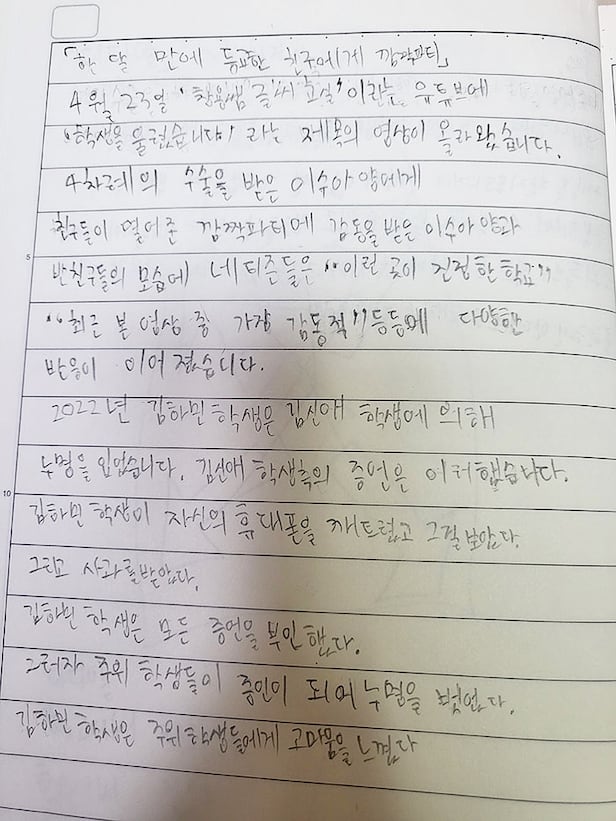 「한 달 만에 등교한 친구에게 깜짝파티」
4월 23일 '창용쌤 글씨 교실' 이라는 유튜브에
'학생을 울렸습니다' 라는 제목의 영상이 올라왔습니다.
4차례의 수술을 받은 이수아 양에게
친구들이 열어준 깜짝파티에 감동을 받은 이수아 양과
반친구들의 모습에 네티즌들은 "이런 곳이 진정한 학교"
"최근 본 영상 중 가장 감동적" 등등에 다양한
반응이 이어졌습니다.
2022년 김하민 학생은 김신애 학생에 의해
누명을 입었습니다. 김신애 학생측의 증언은 이러했습니다.
김하민 학생이 자신의 휴대폰을 깨트렸고 그걸 보았다.
그리고 사과를 받았다.
김하민 학생은 모든 증언을 부인했다.
그러자 주위 학생들이 증인이 되어 누명을 벗었다.
김하민 학생은 주위 학생들에게 고마움을 느꼈다
5
10